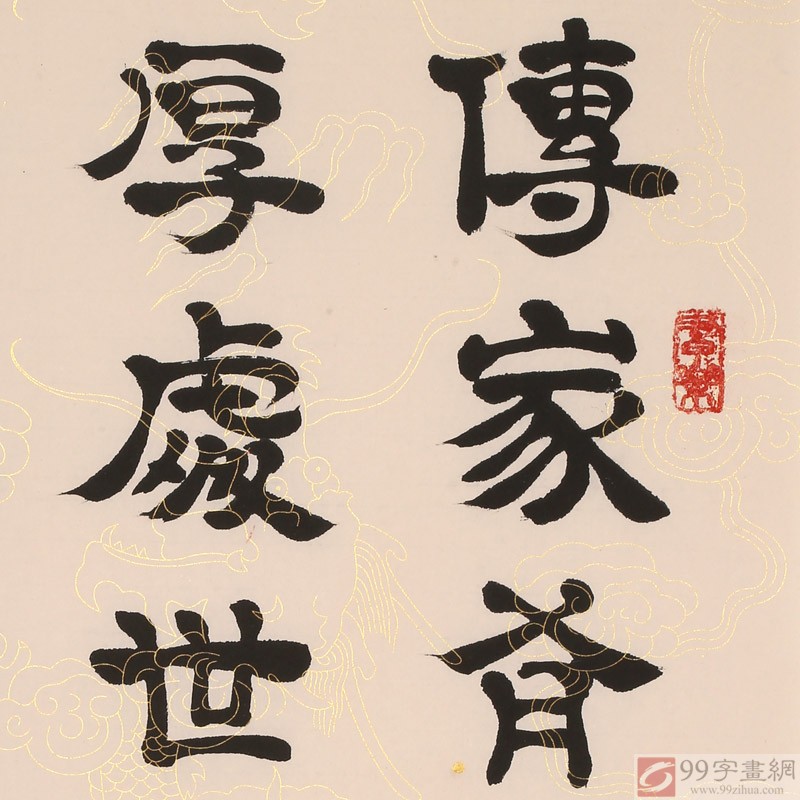 傳家有
厚處世
99字畫網
www.99zihua.com